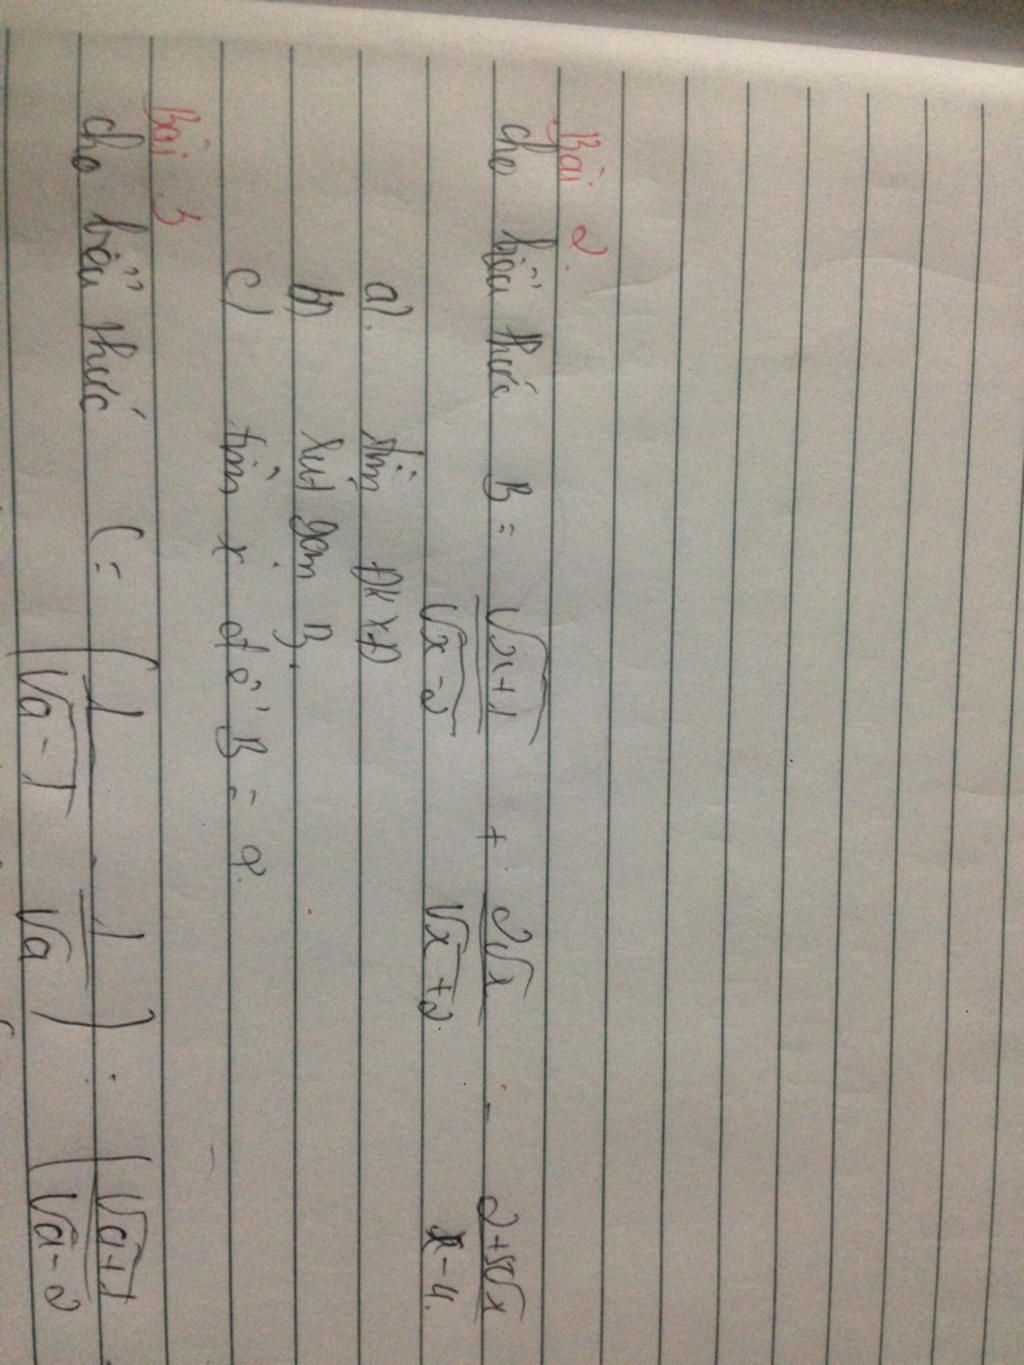 Bài 2.
cho biểu thức B = \frac{\sqrt{x+1}}{\sqrt{x-2}} + \frac{2\sqrt{x}}{\sqrt{x}+2} - \frac{2+5\sqrt{x}}{x-4}.
a). tìm ĐKXĐ
b) rút gọn B.
c) tìm x để B = 2.
Bài 3
cho biểu thức C = (\frac{1}{\sqrt{a-1}} - \frac{1}{\sqrt{a}}) . (\frac{\sqrt{a+1}}{\sqrt{a}-2}